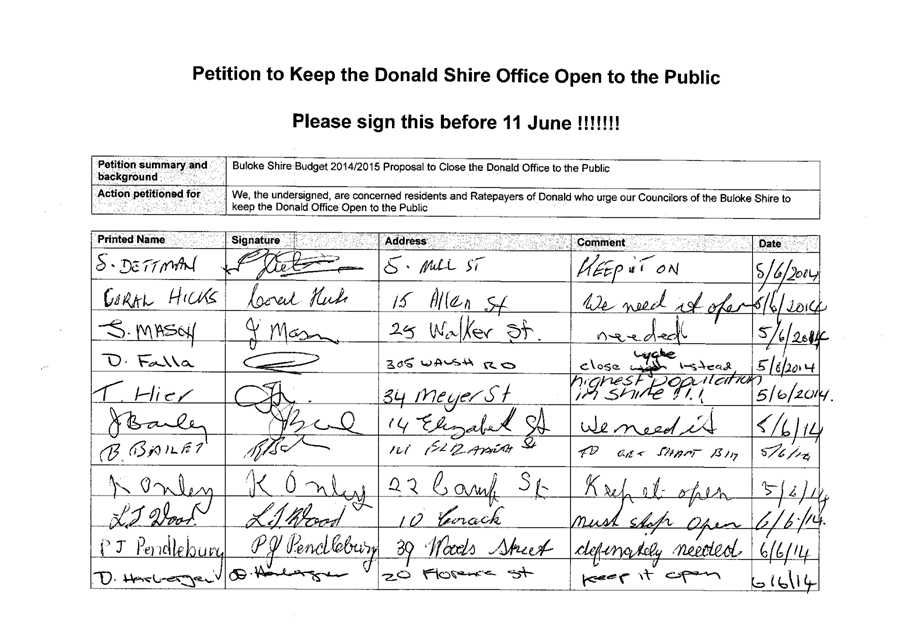 Petition to Keep the Donald Shire Office Open to the Public
Please sign this before 11 June !!!!!!!
Petition summary and background Buloke Shire Budget 2014/2015 Proposal to Close the Donald Office to the Public
Action petitioned for We, the undersigned, are concerned residents and Ratepayers of Donald who urge our Councilors of the Buloke Shire to
keep the Donald Office Open to the Public
Printed Name Signature Address Comment Date
S. DETTMAN 5. MILL ST KEEP IT ON 5/6/2014
CORAL HICKS Coral Hicks 15 Allen St We need it open 5/6/2014
S. MASON J Mason 25 Walker St. needed 5/6/2014
D. Falla 305 WALSH RD close instead 5/6/2014
T. Hier 34 Meyer St highest population in shire !!! 5/6/2014.
J Bailey 14 Elizabeth St We need it 5/6/14
B. BAILEY 14 ELIZABETH St 5/6/14
K Onley K Onley 22 Camp St Keep it open 5/6/14
LJ Wood LJ Wood 10 Corack must stop open 6/6/14.
PJ Pendlebury PJ Pendlebury 39 Woods Street definately needed 6/6/14
D. 20 Florence st keep it open 6/6/14